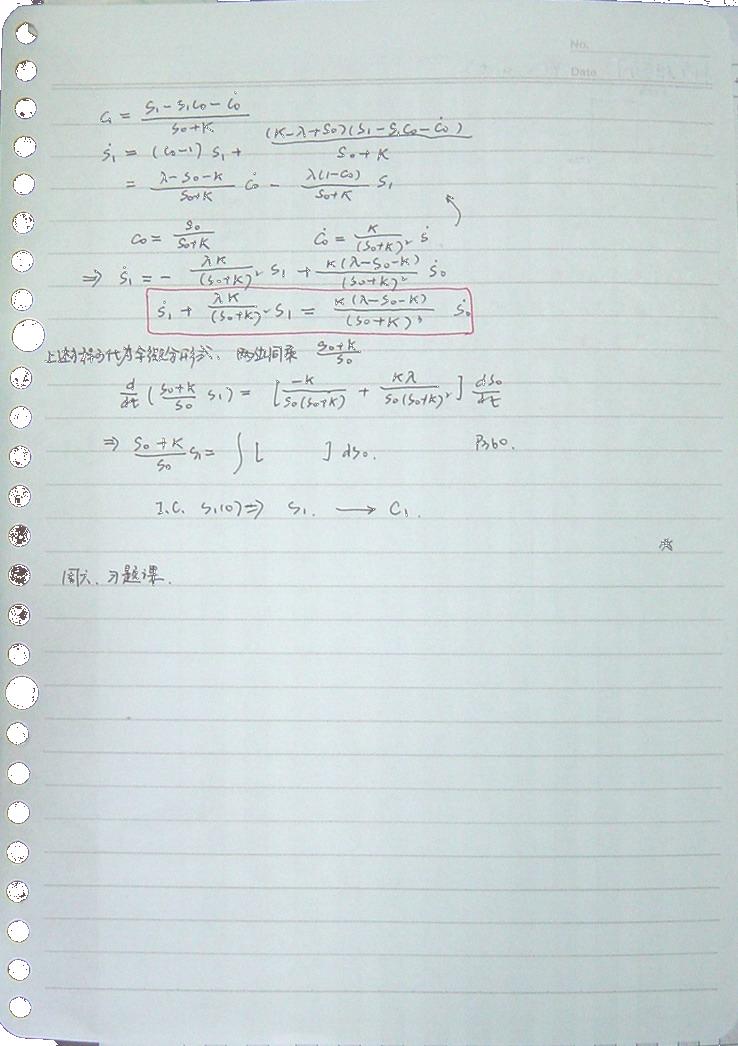 No.
Date
C₁ = (S₁ - S₁C₀ - Ċ₀) / (S₀+K)
Ṡ₁ = (C₀-1) S₁ + (K-λ+S₀)(S₁ - S₁C₀ - Ċ₀) / (S₀+K)
= (λ-S₀-K)/(S₀+K) Ċ₀ - λ(1-C₀)/(S₀+K) S₁
C₀ = S₀/(S₀+K)    Ċ₀ = K/(S₀+K)² Ṡ
⇒ Ṡ₁ = - λK/(S₀+K)² S₁ + K(λ-S₀-K)/(S₀+K)² Ṡ₀
Ṡ₁ + λK/(S₀+K)² S₁ = K(λ-S₀-K)/(S₀+K)³ Ṡ₀
上述方程可化为全微分形式. 两边同乘 (S₀+K)/S₀
d/dt ((S₀+K)/S₀ S₁) = [-K/(S₀(S₀+K)) + Kλ/(S₀(S₀+K)²)] dS₀/dt
⇒ (S₀+K)/S₀ S₁ = ∫[ ] dS₀.    P360.
I.C. S₁(0) ⇒ S₁. → C₁.
周六. 习题课.